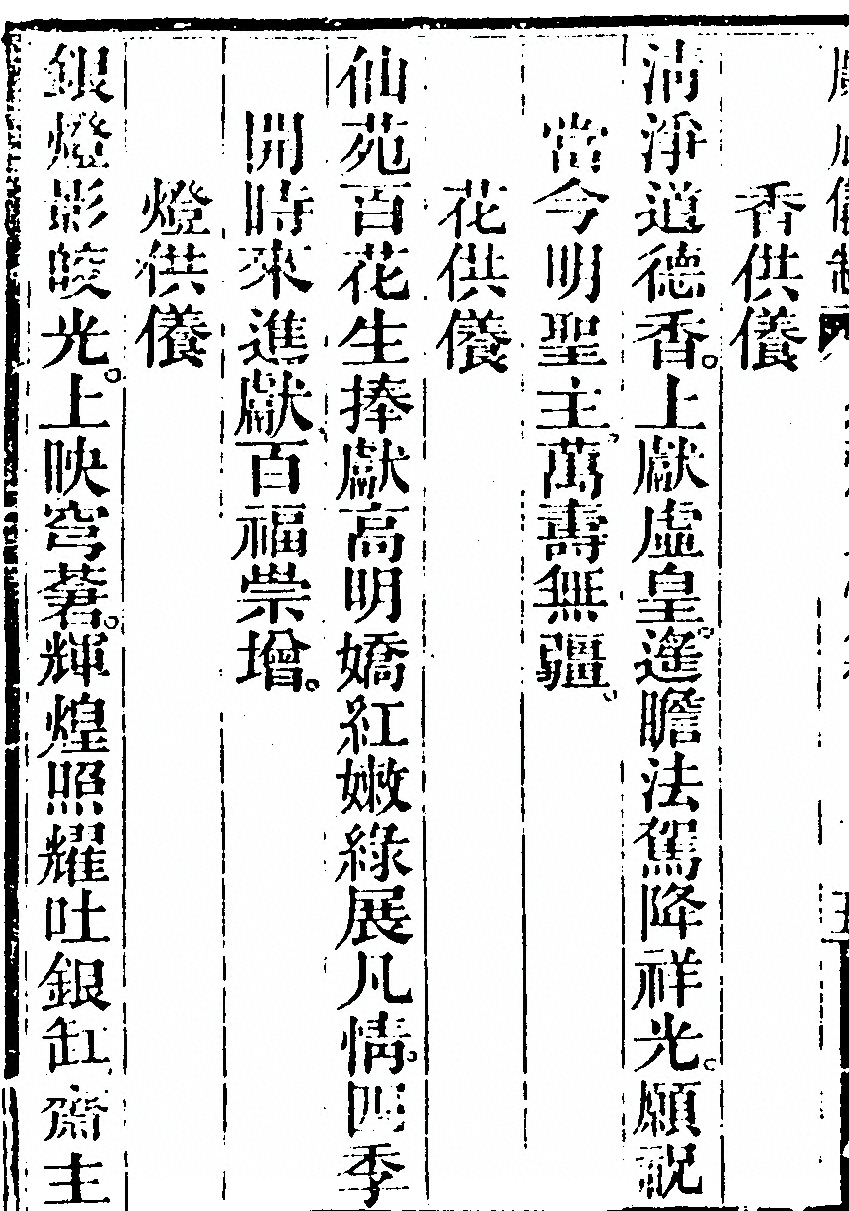 香供儀
清淨道德香。上獻虛皇。遙瞻法駕降祥光。願祝
當今明聖主。萬壽無疆。
花供儀
仙苑百花生捧獻高明嬌紅嫩綠展凡情。四季
開時來進獻。百福崇增。
燈供儀
銀燈影皎光。上映穹蒼。輝煌照耀吐銀缸。齋主